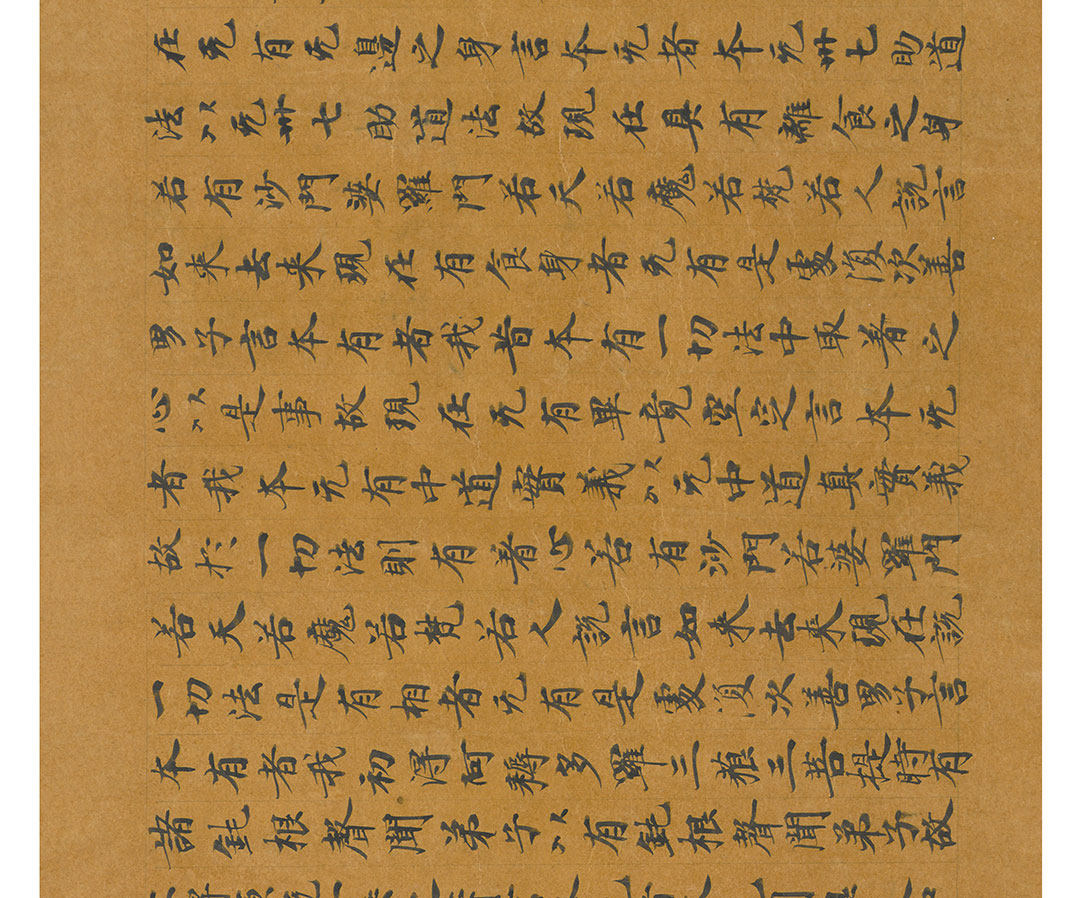 在无有无邊之身言本无者本无卅七助道
法以无卅七助道法故現在具有雜食之身
若有沙門婆羅門若天若魔若梵若人說言
如来去来現在有食身者无有是處復次善
男子言本有者我昔本有一切法中取著之
心以是事故現在无有畢竟空定言本无
者我本无有中道實義以无中道真實義
故於一切法則有著心若有沙門若婆羅門
若天若魔若梵若人說言如来去来現在說
一切法是有相者无有是處須次善男子言
本有者我初得阿耨多羅三藐三菩提時有
諸鈍根聲聞弟子以有鈍根聲聞弟子故